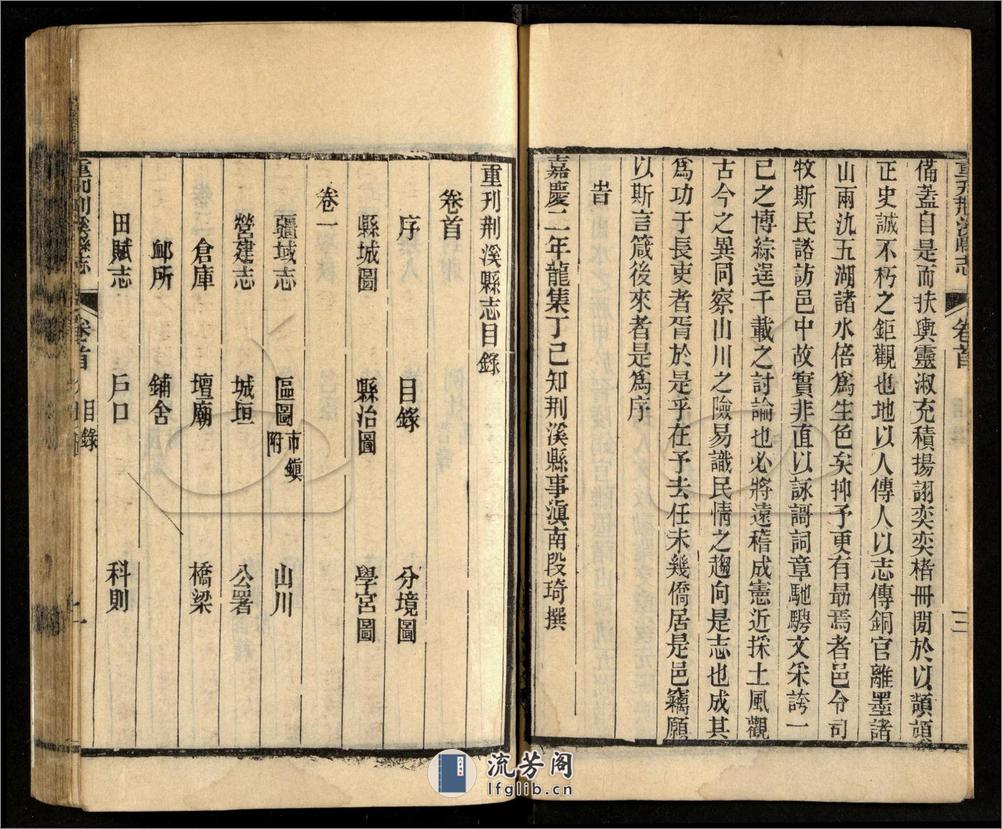 備蓋自是而扶輿靈淑充積揚詡奕奕楮冊閒於以頡頏
正史誠不朽之鉅觀也地以人傳人以志傳銅官離墨諸
山兩氿五湖諸水倍為生色矣抑予更有勗焉者邑令司
牧斯民諮訪邑中故實非直以詠謌詞章馳騁文采誇一
己之博綜逞千載之討論也必將遠稽成憲近採土風觀
古今之異同察山川之險易識民情之趨向是志也成其
爲功于長吏者胥於是乎在予去任未幾僑居是邑竊願
以斯言箴後來者是爲序
旹
嘉慶二年龍集丁巳知荆溪縣事滇南段琦撰
重刋荆溪縣志
卷首
三
重刋荆溪縣志目錄
卷首
序 目錄 分境圖
縣城圖 縣治圖 學宮圖
卷一
疆域志 區圖 市鎮附 山川
營建志 城垣 公署
倉庫 壇廟 橋梁
郵所 鋪舍
田賦志 戶口 科則
重刋荆溪縣志
卷首
目錄
一
流芳阁
lfglib.cn